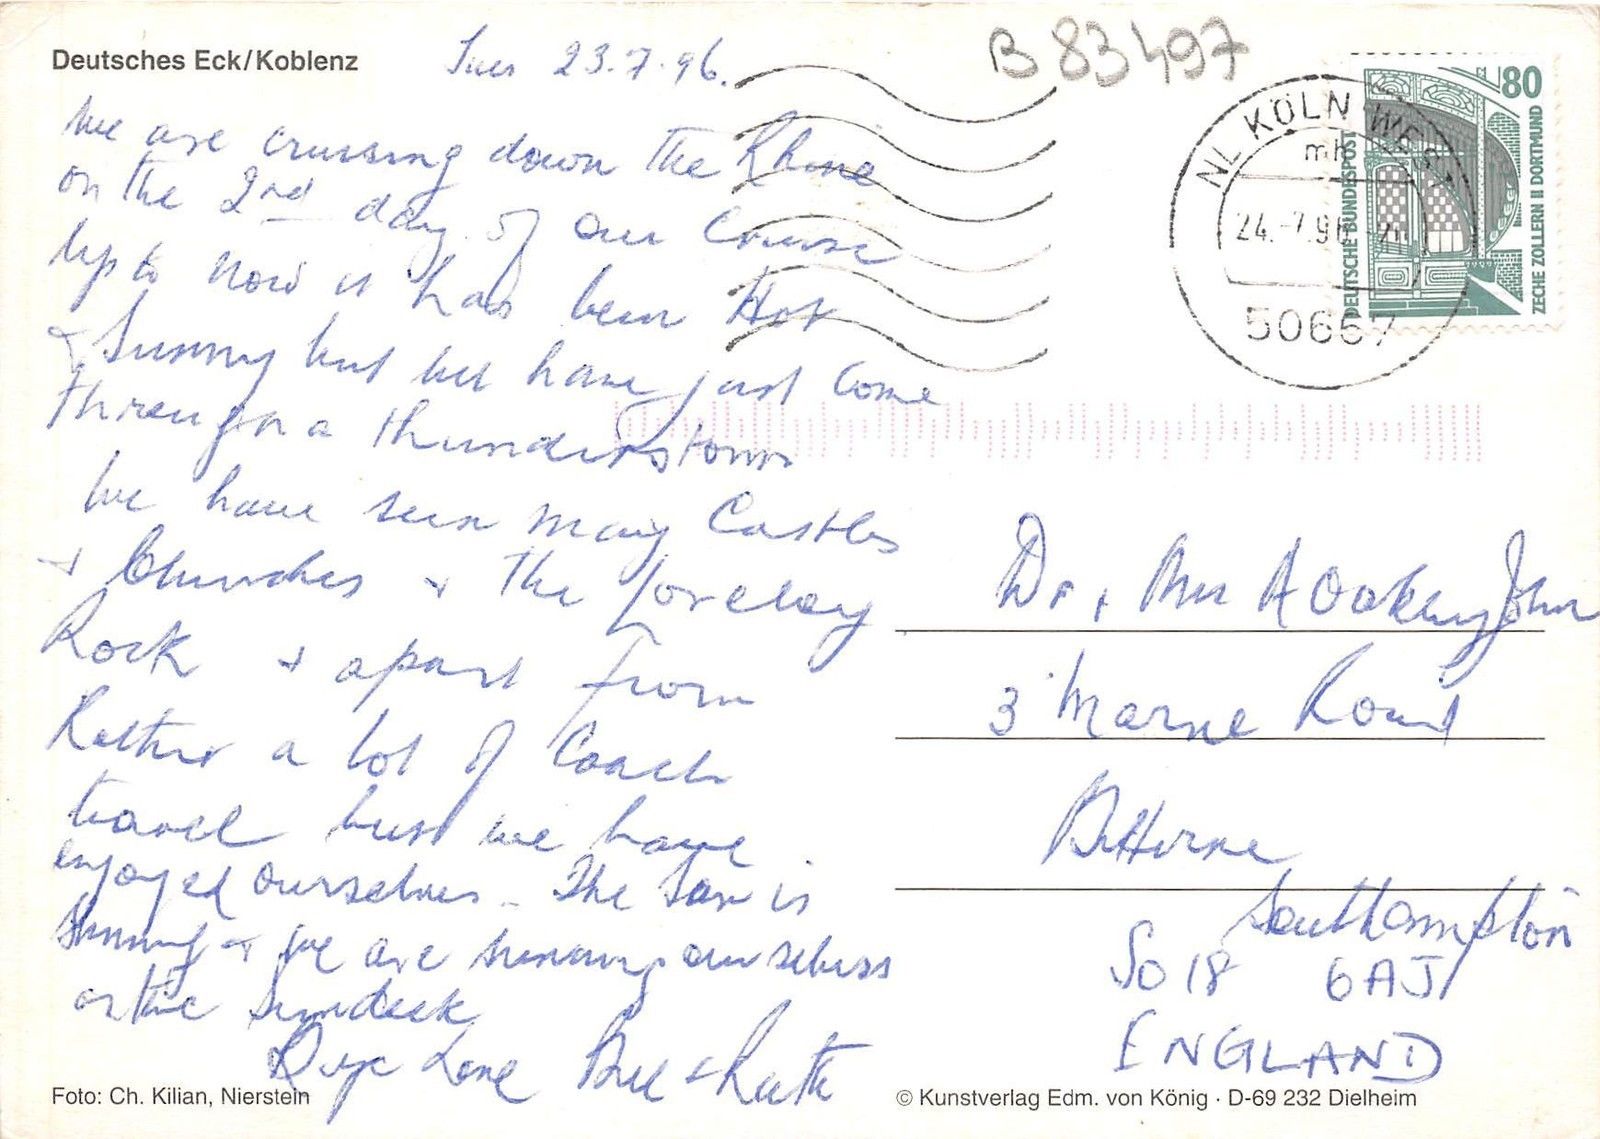 Deutsches Eck/Koblenz
Tues 23.7.96.
B 83497
We are cruising down the Rhine
on the 2nd day of our Cruise
Up to now it has been Hot
& Sunny but we have just come
through a thunderstorm
We have seen many Castles
+ Churches + the Loreley
Rock + apart from
Rather a lot of Coach
travel but we have
enjoyed ourselves. The Sun is
Shining + We are sunning ourselves
on the Sundeck
Love Bill + Ruth
Foto: Ch. Kilian, Nierstein
80
DEUTSCHE BUNDESPOST
ZECHE ZOLLERN II DORTMUND
NL KÖLN WEST
mk
24.-7.96
50667
Dr + Mrs A Oakley John
3 Marne Road
Bitterne
Southampton
SO18 6AJ
ENGLAND
© Kunstverlag Edm. von König · D-69 232 Dielheim